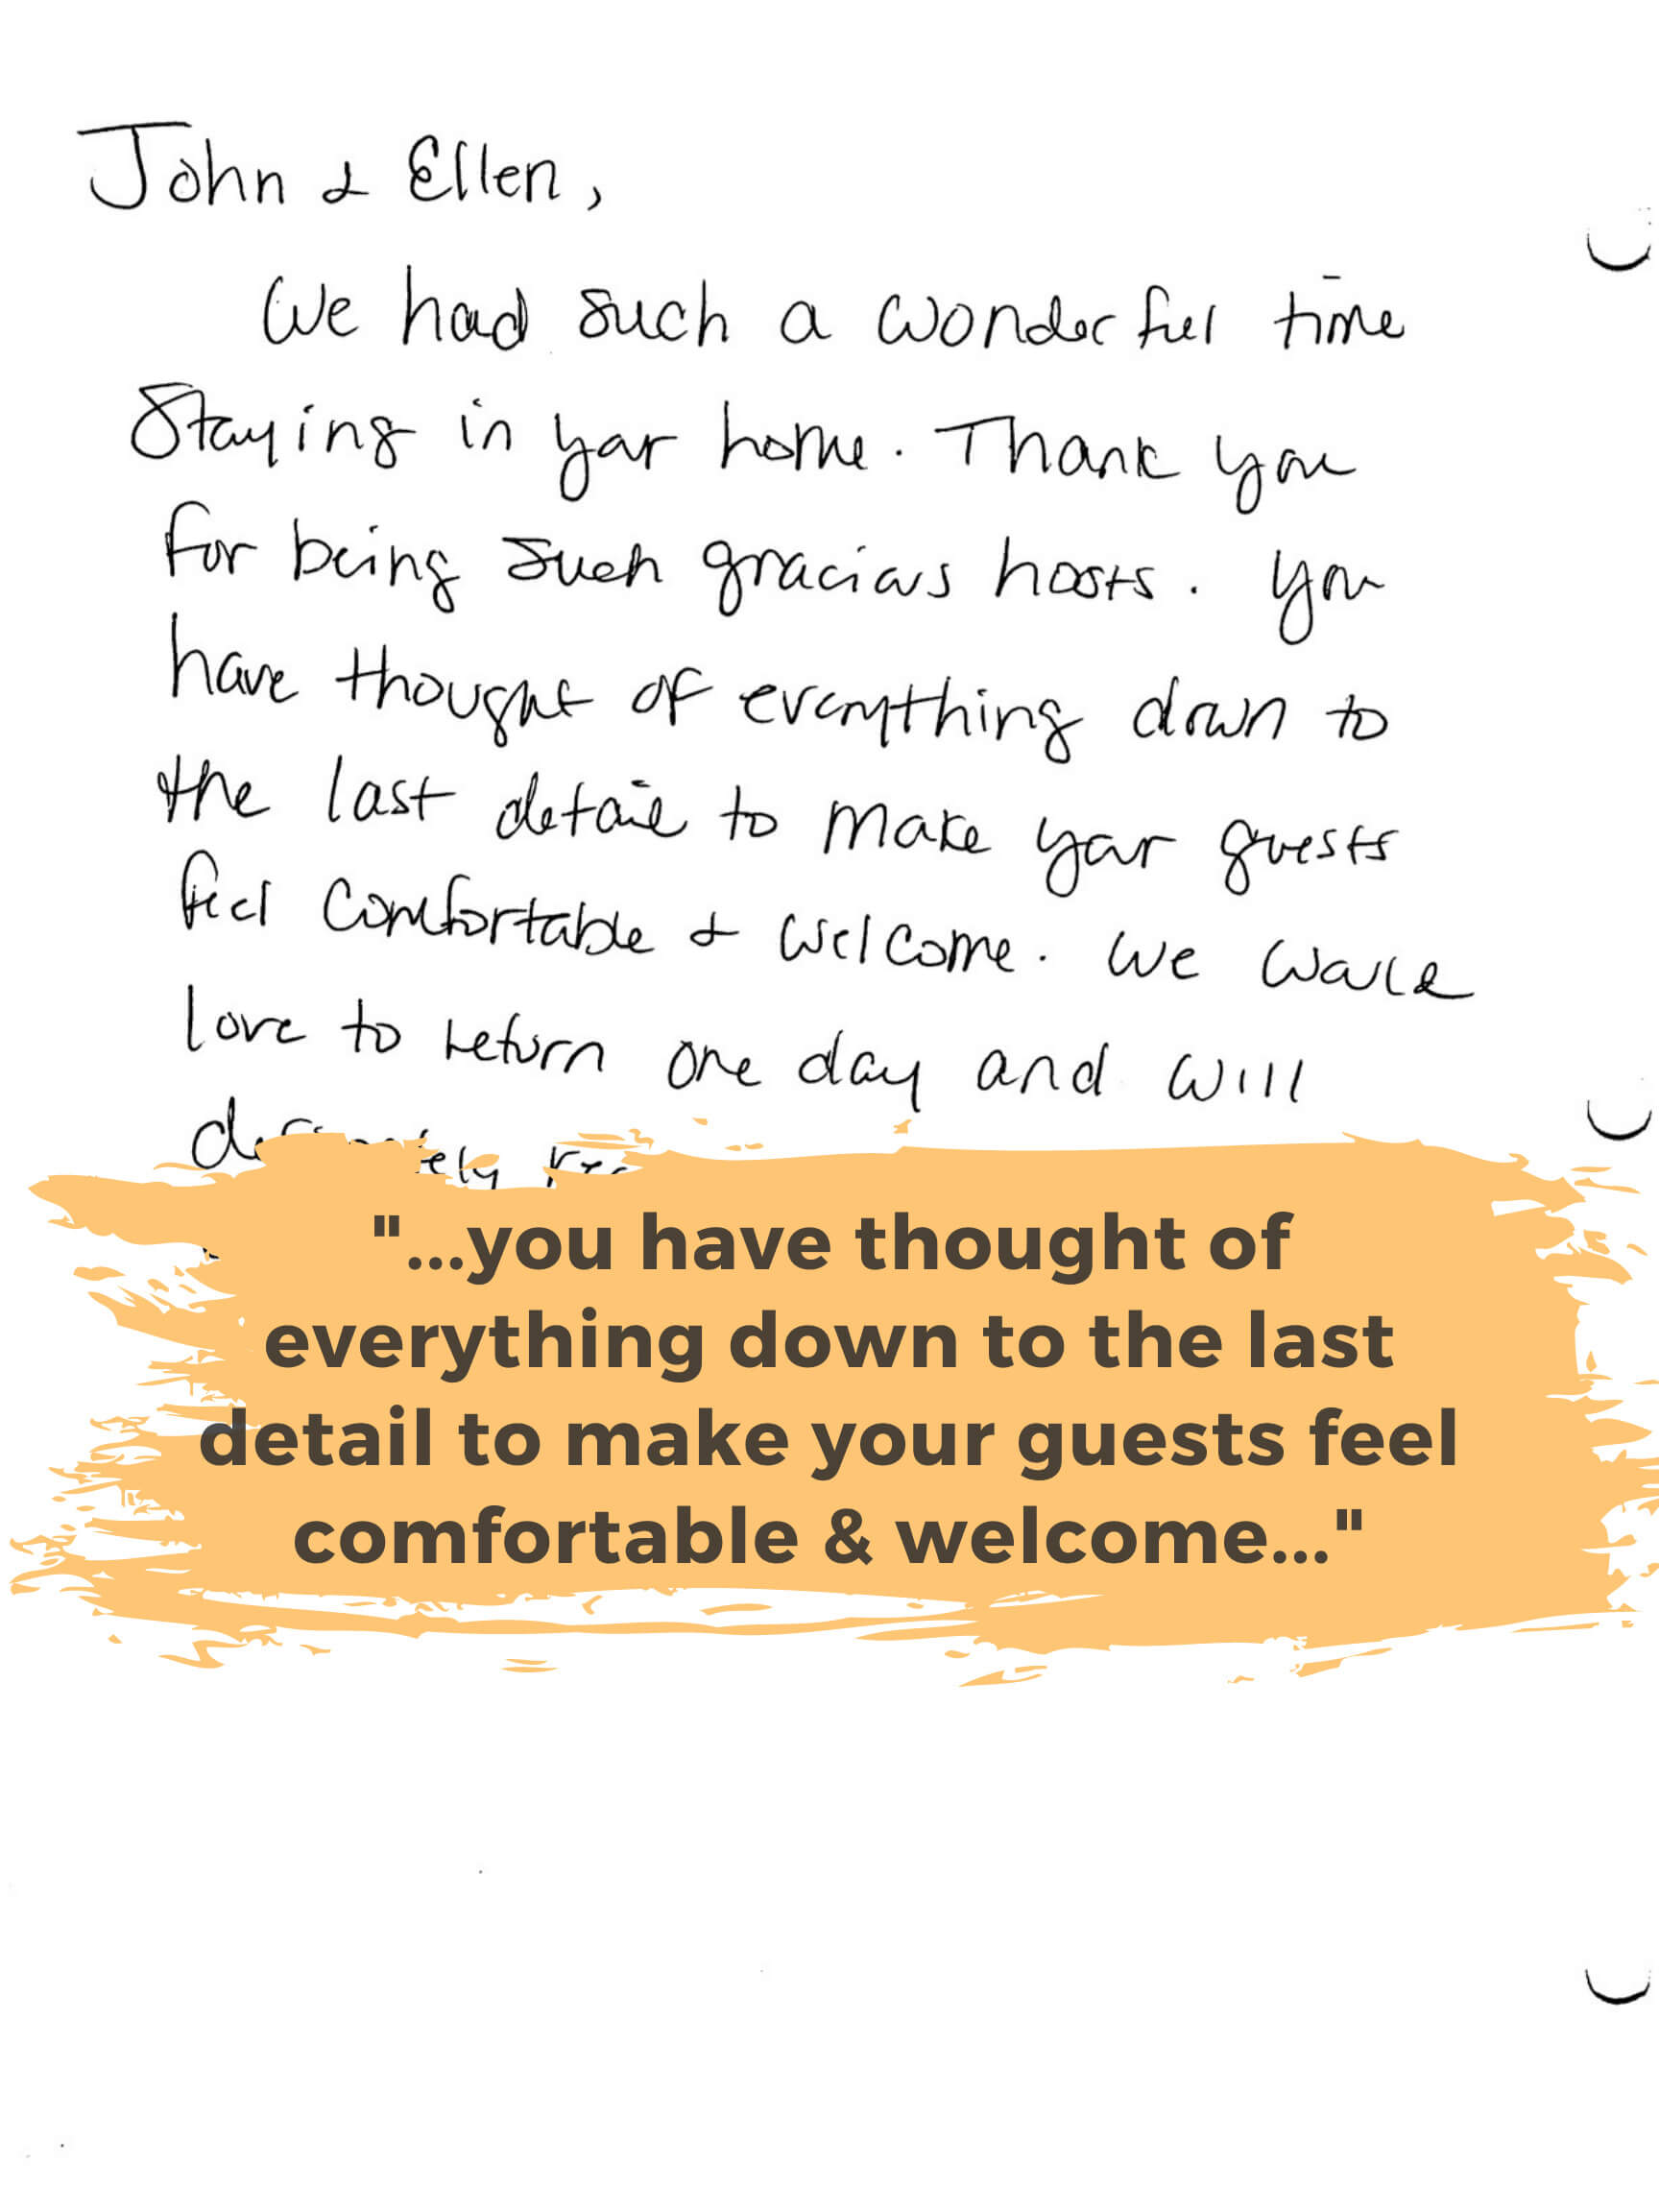 John & Ellen,
We had such a wonderful time
staying in your home. Thank you
for being such gracious hosts. You
have thought of everything down to
the last detail to make your guests
feel comfortable & welcome. We would
love to return one day and will
"...you have thought of
everything down to the last
detail to make your guests feel
comfortable & welcome..."